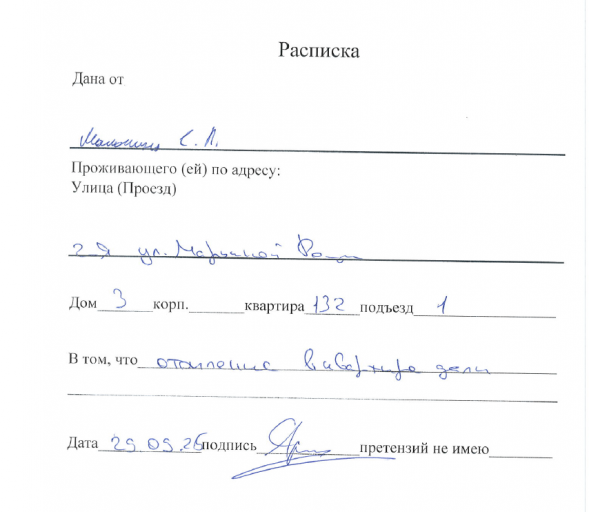 Расписка
Дана от
С. Л.
Проживающего (ей) по адресу:
Улица (Проезд)
2-я ул. Марьиной Рощи
Дом 3 корп. квартира 132 подъезд 1
В том, что отопление в квартире дали
Дата 29.09.26 подпись претензий не имею